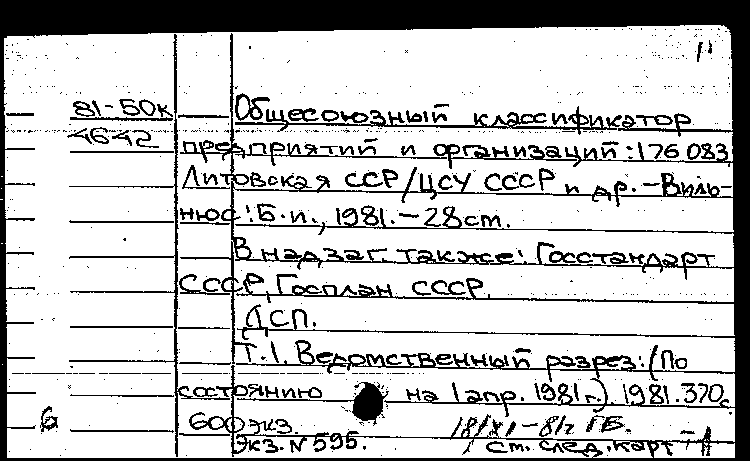 81-50к Общесоюзный классификатор
4642 предприятий и организаций: 176 083
Литовская ССР/ЦСУ СССР и др. - Виль-
нюс: Б.и., 1981. - 28 см.
В надзаг. также: Госстандарт
СССР, Госплан СССР.
ДСП.
Т.1. Ведомственный разрез: (По
состоянию на 1 апр. 1981 г.). 1981. 370 с.
б 600 экз. 18/XI-81г
Экз. N 595. см. след. карт